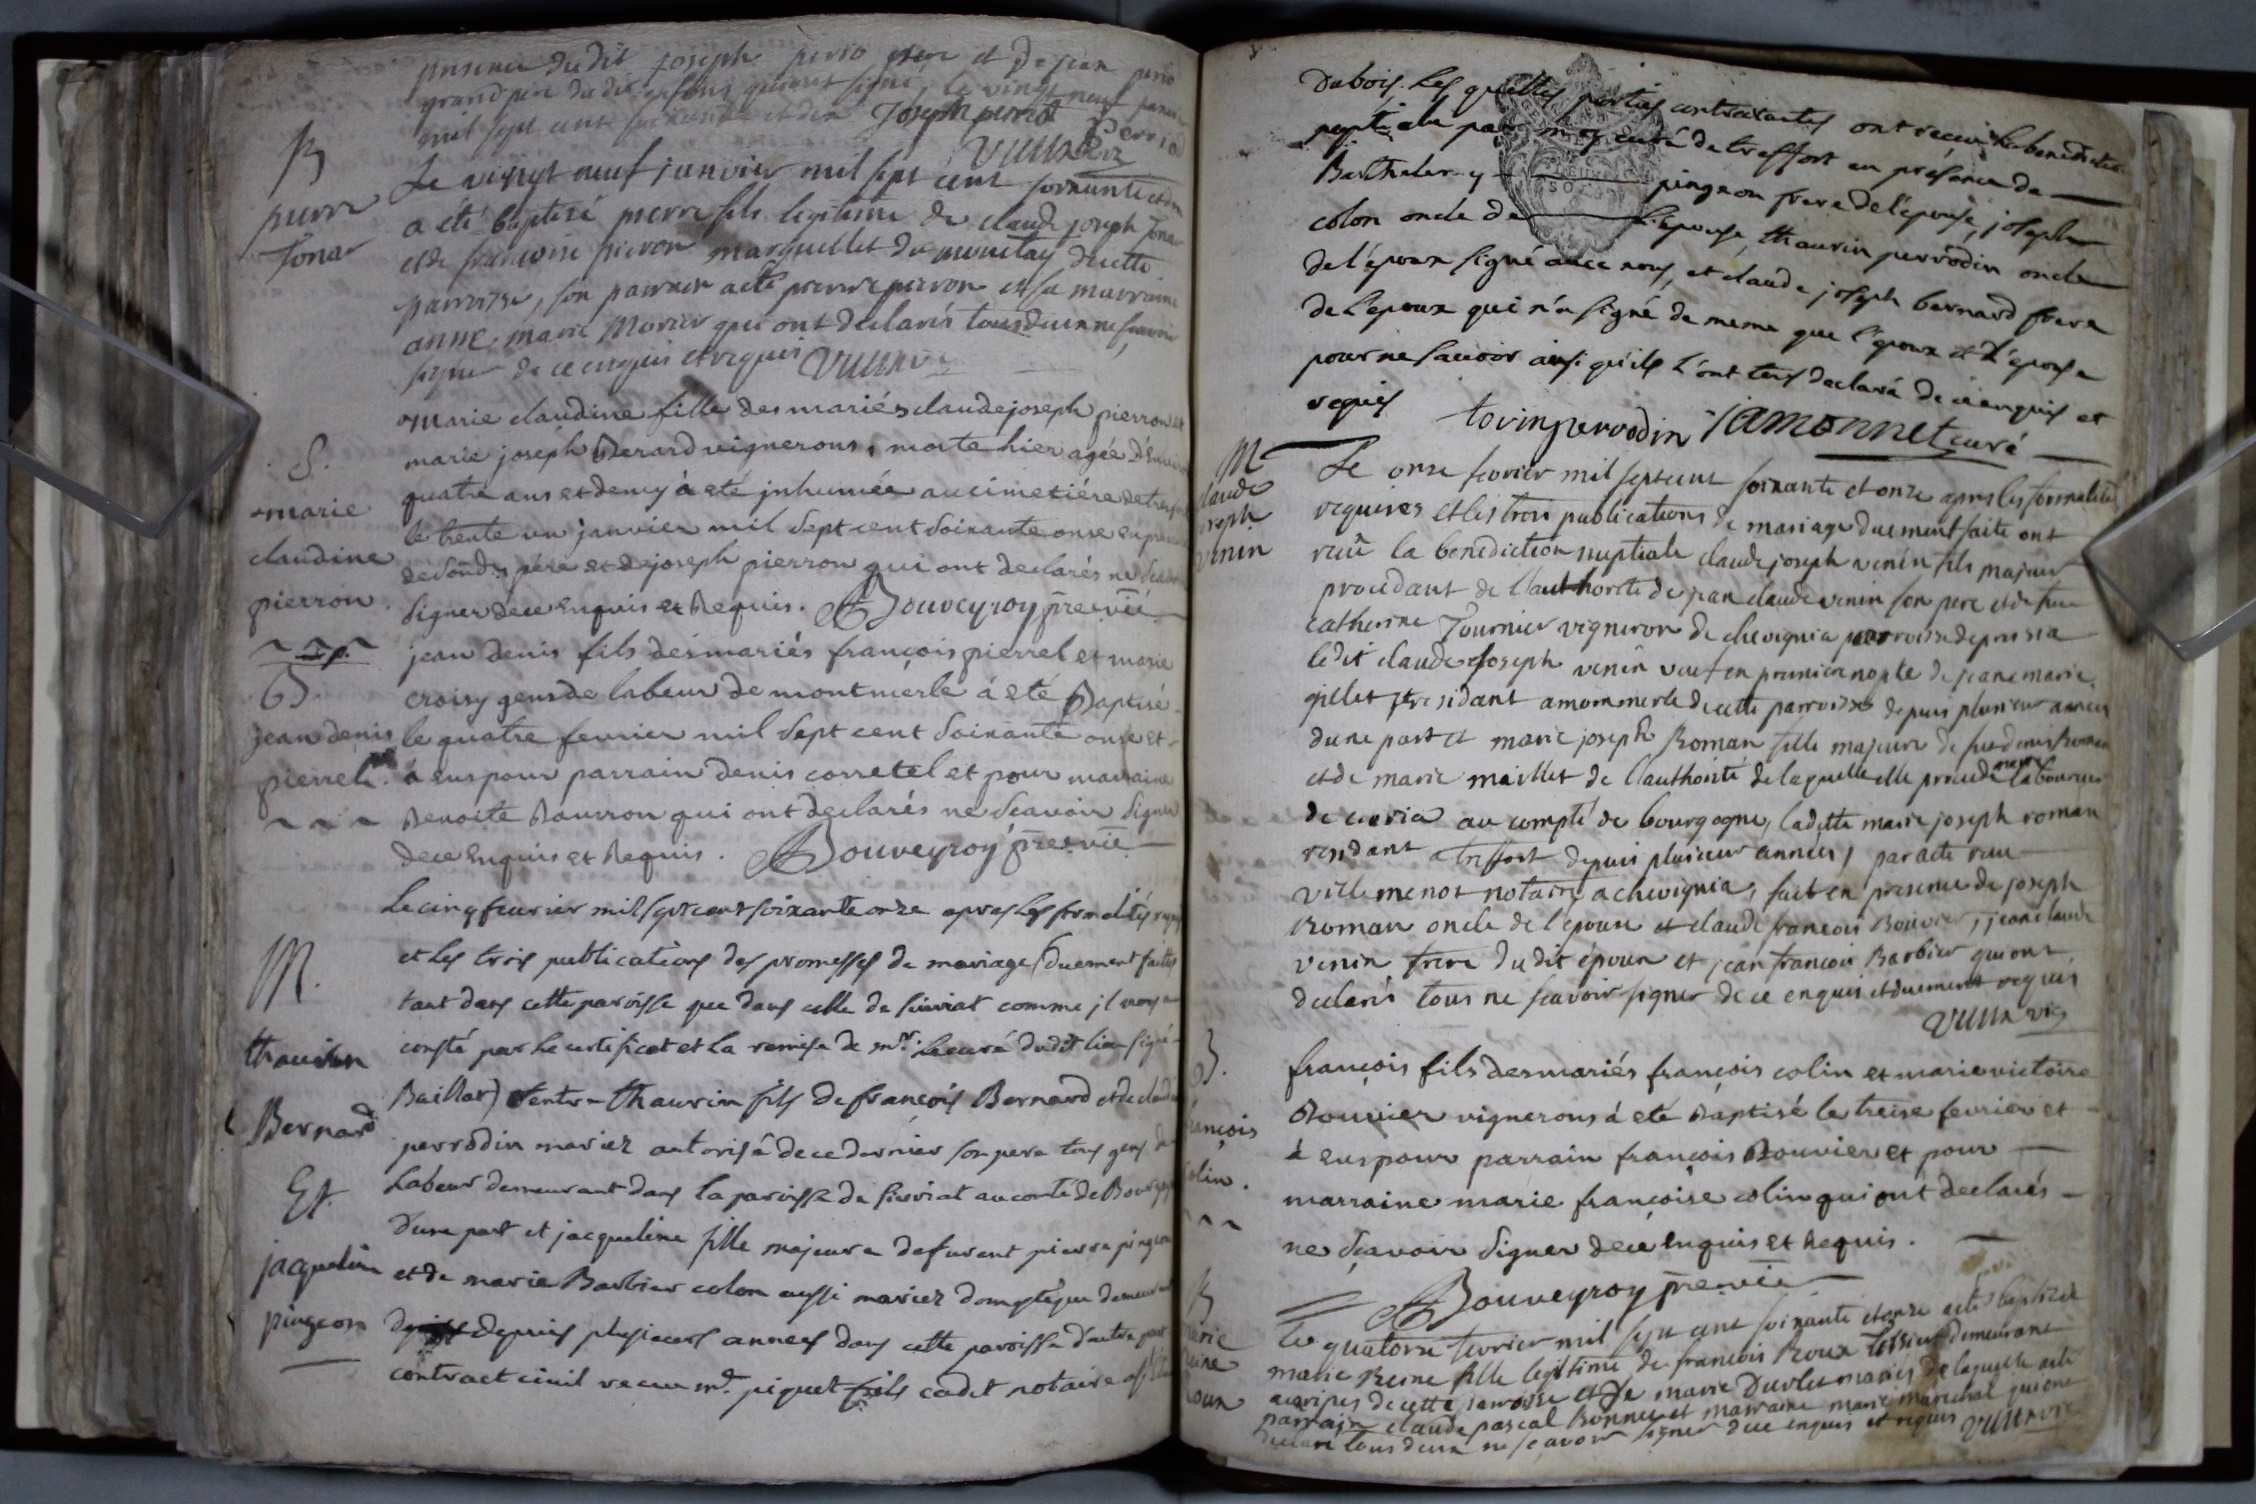 presence dudit joseph perro pere et de jean perro
grand pere dudit enfans qui ont signé, le vingt neuf janvier
mil sept cent soixante et dix Joseph perrod
Perrod
Vuiln
B
pierre
Le vingt neuf janvier mil sept cent soixante et dix
a été baptisé pierre fils legitime de claude joseph
et de francoise pieron marguellet du mouctay de cette
parroisse, son parrain a eté pierre pieron et sa marraine
anne marie Morier qui ont declarés tous deux ne sçavoir
signer de ce enquis et requis
S.
marie
claudine
pierron.
Marie claudine fille des mariés claude joseph pierron et
marie joseph Berard vignerons, morte hier agée d'environ
quatre ans et demy à eté inhumée au cimetiére de treffort
le trente un janvier mil sept cent soixante onse en presence
de sondit père et de joseph pierron qui ont declarés ne sçavoir
signer de ce enquis et Requis. Bouveyroy prê vic
B.
jean denis
pierrel.
jean denis fils des mariés françois pierrel et marie
croisy gens de labeur de montmerle á eté Baptisé
le quatre fevrier mil sept cent soixante onse et
á eus pour parrain denis corretel et pour marraine
Benoite Bouvron qui ont declarés ne sçavoir signer
de ce enquis et Requis. Bouveyroy prê vic
M.
thaurin
Bernard
Et
jaqueline
pingeon
Le cinq fevrier mil sept cent soixante onze apres les formalités requises
et les trois publications des promesses de mariage (duement faittes
tant dans cette paroisse que dans celle de simiat comme il nous a
consté par le certificat et la remise de mr. le curé dudit lieu signé
Baillat) entre thaurin fils de françois Bernard et de claudine
perrodin mariez autorisé de ce dernier son pere tous gens de
Labeur demeurant dans la paroisse de simiat au conté de Bourgogne
d'une part et jacqueline fille majeure de furent pierre pingeon
et de marie Barbier colon aussi mariez demeurant
depuis plusieurs années dans cette paroisse d'autre part
contract civil receu me. piquet fils cadet notaire
Dubois. Les quelles parties contractantes ont receu la benediction
nuptiale par moy curé de treffort en présence de
Barthelemy pingeon frere de l'epouse, joseph
colon oncle de l'epouse, thaurin perrodin oncle
de l'époux signé avec nous, et claude joseph bernard frere
de l'epoux qui n'a signé de meme que l'epoux et l'epouse
pour ne sçavoir ainsi qu'ils l'ont tous declaré de ce enquis et
requis tovin pervodin jamonnet curé
M
claude
joseph
venin
Le onze fevrier mil sept cent soixante et onze apres les formalités
requises et les trois publications de mariage duement faite ont
reçû la benediction nuptiale claude joseph venin fils majeur
procedant de l'authorité de jean claude venin son pere et de feue
catherine Tournier vigneron de chevignia parroisse de prussia
ledit claude joseph venin veuf en premiere nopse de jeane marie
gillet residant a mommerle de cette parroisse depuis plusieurs années
d'une part et marie joseph Roman fille majeure de feu denis Roman
et de marie maillet de l'authorité de laquelle elle procede laboureur
de cuvria au compté de bourgogne, ladette marie joseph roman
residant a treffort depuis plusieurs années, par acte receu
villemenot notaire a chevignia, fait en presence de joseph
Roman oncle de l'epouse et claude francois Bouvier, jean claude
venin frere dudit époux et jean francois Barbier qui ont
declarés tous ne sçavoir signer de ce enquis et duement requis
B.
françois
colin.
françois fils des mariés françois colin et marie victoire
Bouvier vignerons á eté Baptisé le treise fevrier et
á eus pour parrain françois Bouvier et pour
marraine marie françoise colin qui ont declarés
ne sçavoir signer de ce enquis et Requis.
Bouveyroy prê vic
B
marie
Reine
Roux
Le quatorze fevrier mil sept cent soixante et onze a été baptizée
marie Reine fille legitime de francois Roux tessier demeurant
de cette parroisse et de marie mariés de laquelle a eté
parrain claude pascal Bonnet et marraine marie marechal qui ont
declaré tous deux ne sçavoir signer de ce enquis et requis